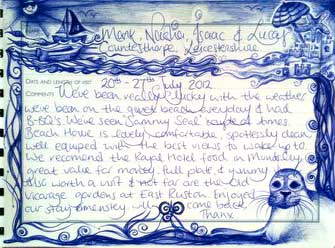 Mark, Natalie, Isaac & Lucas
Countesthorpe, Leicestershire
DATE AND LENGTH OF VISIT 20th - 27th July 2012
COMMENTS We've been really lucky with the weather
we've been on the quiet beach everyday & had
B-BQ's. We've seen 'Sammy Seal' couple of times.
Beach House is lovely, comfortable, spotlessly clean
well equiped with the best views to wake up to.
We recomend the Royal Hotel food in Mundesley,
great value for money, full plate, & yummy
Also worth a visit & not far are the Old
Vicarage gardens at East Ruston. Enjoyed
our stay imensley will come back.
Thanx